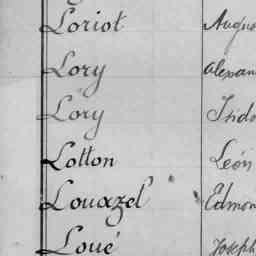 Loriot Augus
Lory Alexan
Lory Isido
Lotton Léon
Louazel Edmon
Loué Joseph